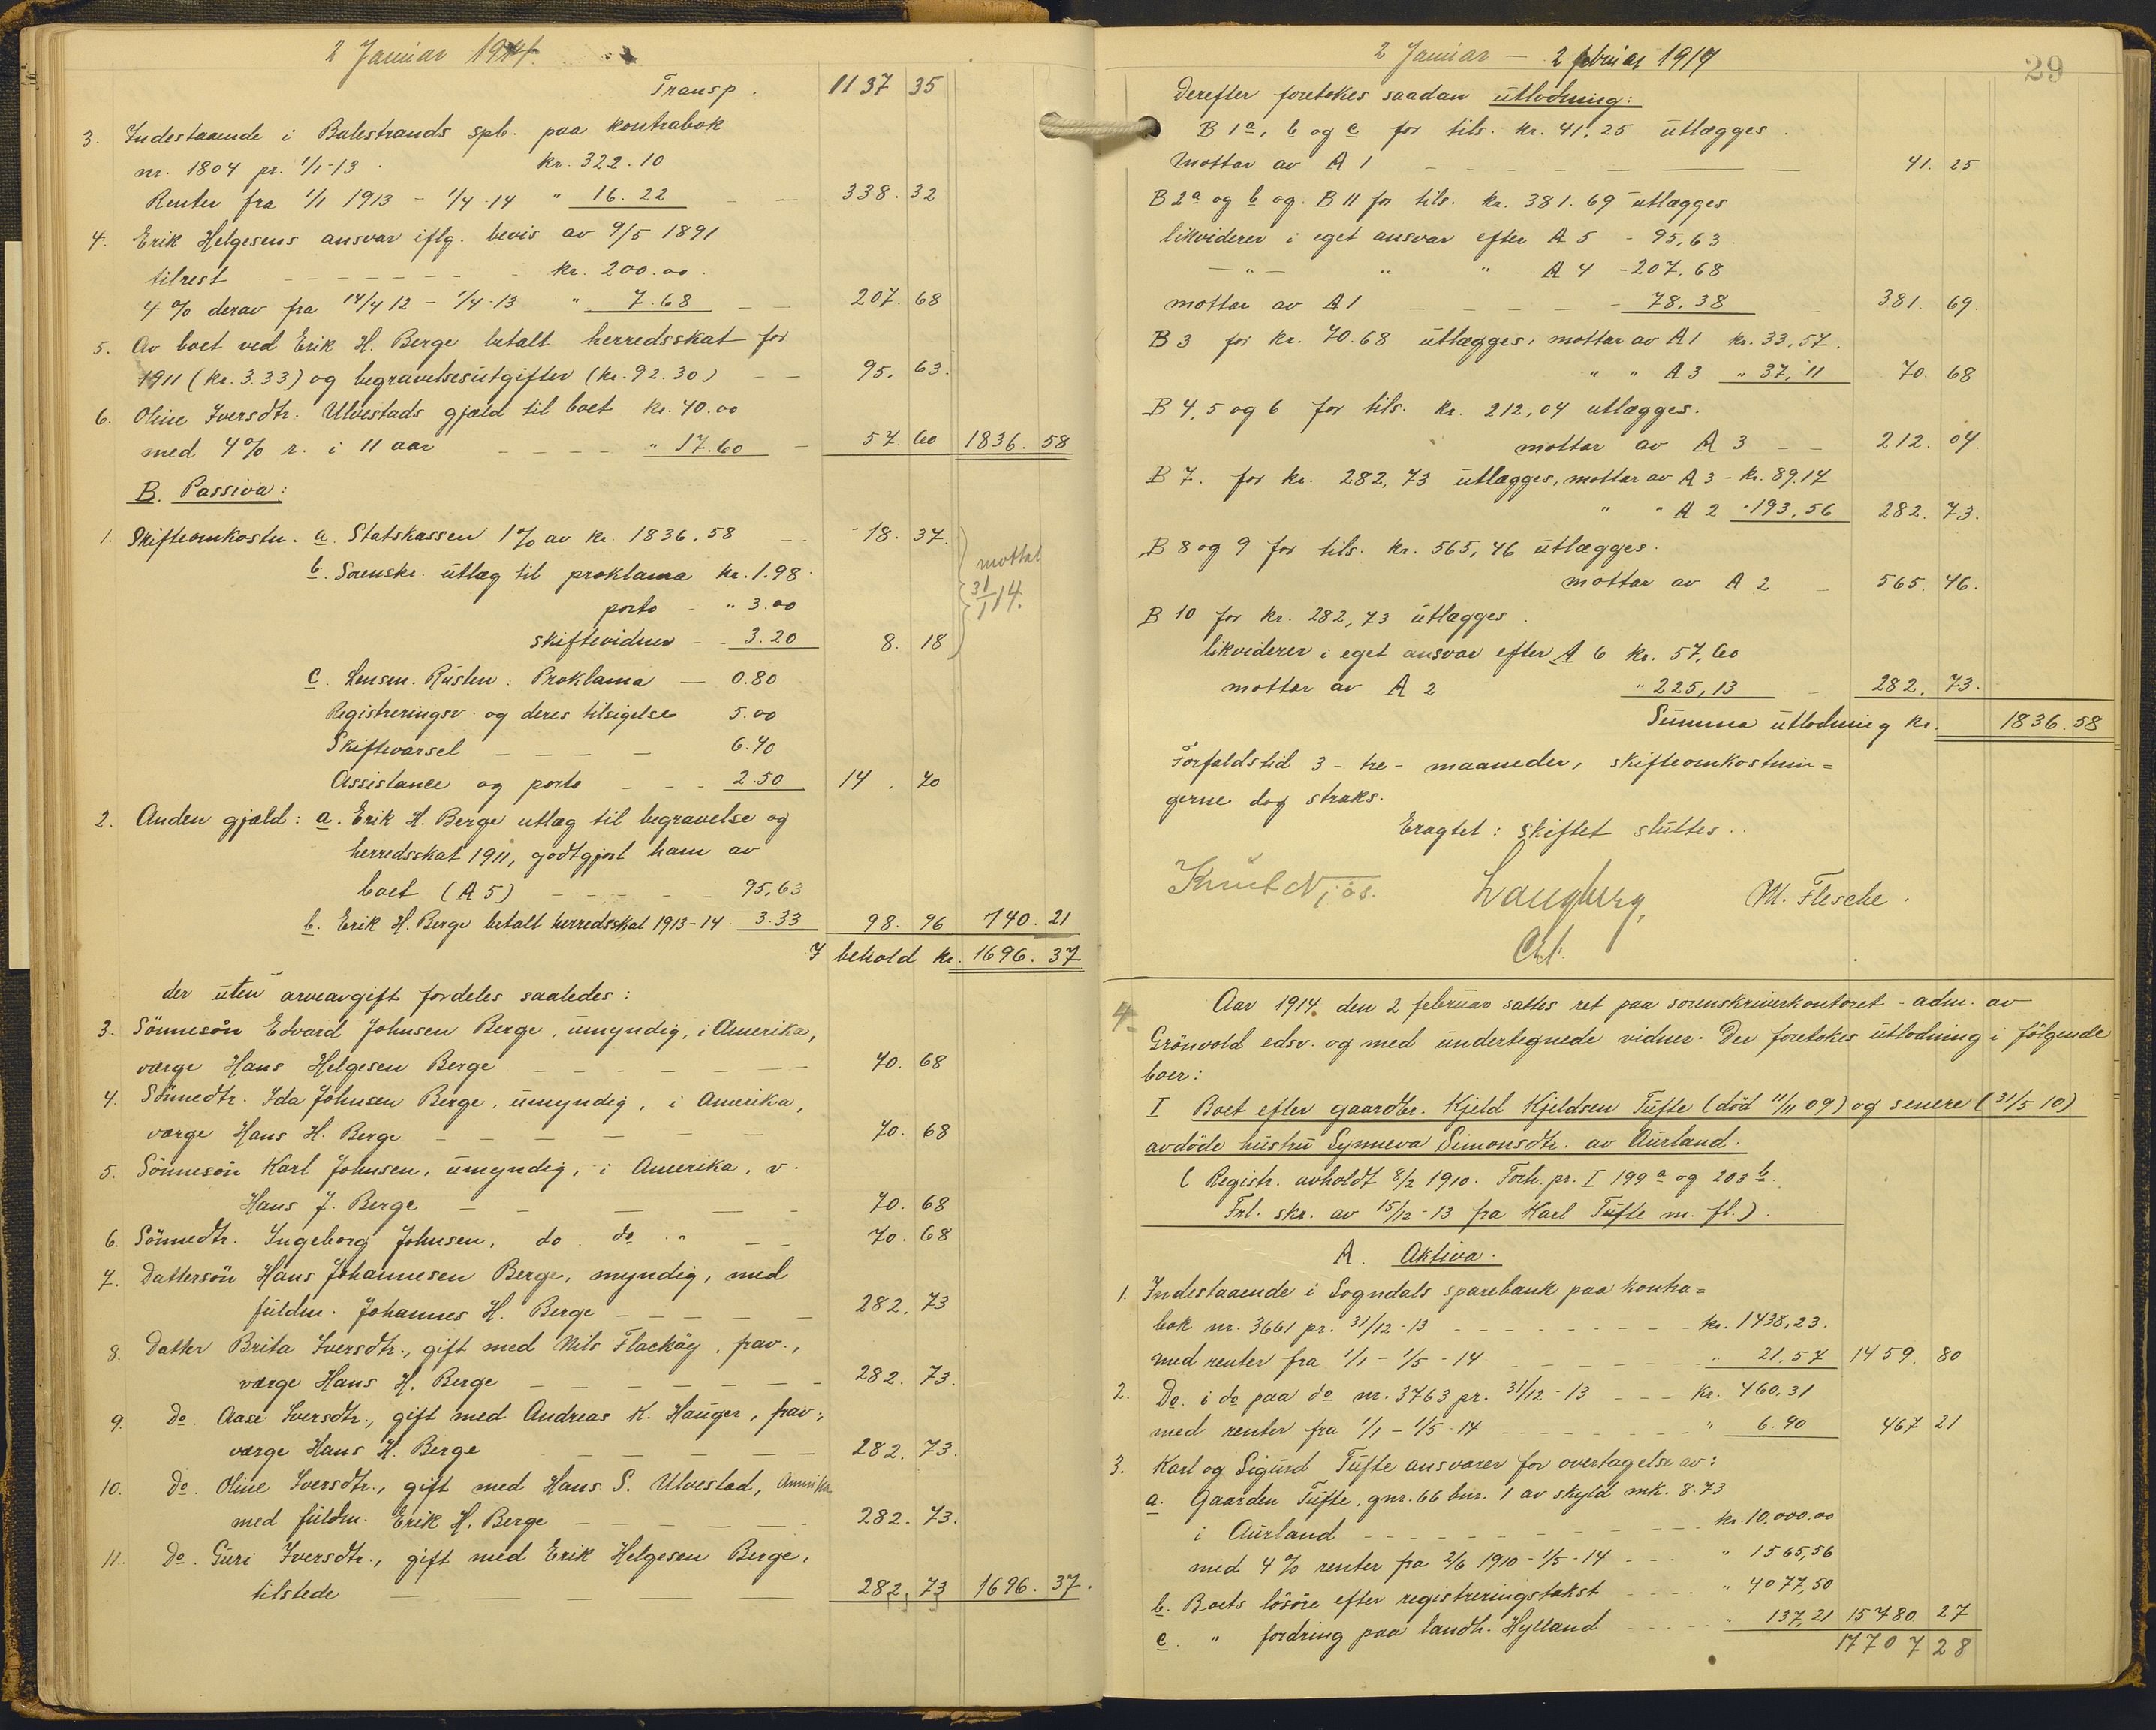 2 Januar 1914.
Transp. 1137 35
3. Indestaaende i Balestrands spb. paa kontrabok
nr. 1804 pr. 1/1-13. kr. 322.10
Renter fra 1/1 1913 - 1/4-14 " 16.22 — — 338. 32
4. Erik Helgesens ansvar iflg. bevis av 9/5 1891
tilrest - - - - - - - kr. 200.00.
4% derav fra 14/4 12 - 1/4-13 " 7.68 — — 207. 68
5. Av boet ved Erik H. Berge betalt herredsskat for
1911 (kr. 3.33) og begravelsesutgifter (kr. 92.30) — — 95. 63.
6. Oline Iversdtr. Ulvestads gjæld til boet kr. 40.00
med 4% r. i 11 aar - - - - " 17.60 — 57. 60 1836. 58
B. Passiva:
1. Skifteomkostn. a. Statskassen 1% av kr. 1836.58 - - 18. 37.
b. Sorenskr. utlæg til proklama kr. 1.98.
mottat
porto - " 3.00
31/1 14.
skiftevidner - - 3.20 8. 18
c. Lensm. Rusten: Proklama — 0.80
Registreringsv. og deres tilsigelse 5.00
Skiftevarsel — — — — 6.40
Assistance og porto - - - 2.50 14. 70
2. Anden gjæld: a. Erik H. Berge utlæg til begravelse og
herredsskat 1911, godtgjort ham av
boet (A 5) — — — — - 95,63
b. Erik H. Berge betalt herredsskat 1913-14. 3.33 98. 96 140. 21
I behold kr. 1696. 37
der uten arveavgift fordeles saaledes:
3. Sönnesön Edvard Johnsen Berge, umyndig, i Amerika,
værge Hans Helgesen Berge — — — — — — — 70. 68
4. Sönnedtr. Ida Johnsen Berge, umyndig, i Amerika,
værge Hans H. Berge — — — — — — — 70. 68
5. Sönnesön Karl Johnsen, umyndig, i Amerika, v.
Hans J. Berge — — — — — - 70. 68
6. Sönnedtr. Ingeborg Johnsen, do. do. " — — 70. 68
7. Dattersön Hans Johannesen Berge, myndig, med
fuldm. Johannes H. Berge — — — — — — 282. 73
8. Datter Brita Iversdtr., gift med Nils Flacköy, frav.,
værge Hans H. Berge — — — — — — — 282. 73.
9. Do. Aase Iversdtr., gift med Andreas K. Hauger, frav.,
værge Hans H. Berge — — — — — — 282. 73.
10. Do. Oline Iversdtr., gift med Hans S. Ulvestad, Amerika
med fuldm. Erik H. Berge — — — — — - 282. 73.
11. Do. Guri Iversdtr., gift med Erik Helgesen Berge,
tilstede — — — — — — 282. 73 1696. 37.
2 Januar — 2 februar 1914
29
Derefter foretokes saadan utlodning:
B 1a, b og c for tils. kr. 41.25 utlægges.
Mottar av A 1 - - - - - — — 41. 25
B 2a og b og B 11 for tils. kr. 381.69 utlægges
likviderer i eget ansvar efter A 5 - 95,63.
— " — " " A 4 - 207,68
mottar av A 1 — — — — — - 78,38 - 381. 69.
B 3 for kr. 70.68 utlægges, mottar av A 1 kr. 33,57.
" " A 3 " 37,11 70. 68
B 4, 5 og 6 for tils. kr. 212,04 utlægges.
mottar av A 3 — — 212. 04.
B 7. for kr. 282,73 utlægges, mottar av A 3 - kr. 89.17
" " A 2 " 193,56 282. 73.
B 8 og 9 for tils. kr. 565,46 utlægges.
mottar av A 2 — 565. 46.
B 10 for kr. 282,73 utlægges.
likviderer i eget ansvar efter A 6 kr. 57,60
mottar av A 2 " 225,13 — 282. 73.
Summa utlodning kr. 1836.58
Forfaldstid 3 - tre - maaneder, skifteomkostnin=
gerne dog straks.
Eragtet: Skiftet sluttes.
Knut Njøs. Langberg, M. Flesche.
Cst.
4. Aar 1914. den 2 februar sattes ret paa sorenskriverkontoret - adm. av
Grönvold edsv. og med undertegnede vidner. Der foretokes utlodning i fölgende
boer:
I Boet efter gaardbr. Kjeld Kjeldsen Tufte (död 11/11 09) og senere (31/5 10)
avdöde hustru Synneva Simonsdtr. av Aurland.
( Registr. avholdt 8/2 1910. Forh. pr. I 199a og 203b.
Frl. skr. av 15/12-13 fra Karl Tufte m. fl.).
A. Aktiva.
1. Indestaaende i Sogndals sparebank paa kontra=
bok nr. 3661 pr. 31/12-13 - - - - - - - - - kr. 1438,23.
med renter fra 1/1 - 1/5-14 - - - - - - - - " 21,57 1459. 80
2. Do. i do paa do nr. 3763 pr. 31/12-13 - - - kr. 460,31
med renter fra 1/1 - 1/5-14 - - - - - - - - " 6.90 467 21
3. Karl og Sigurd Tufte ansvarer for overtagelse av:
a. Gaarden Tufte, gnr. 66 bnr. 1 av skyld mk. 8.73
i Aurland - - - - - - - - - - kr. 10,000.00
med 4% renter fra 2/6 1910 - 1/5-14 - - - " 1565,56
b. Boets lösöre efter registreringstakst - - - - " 4077,50
c. " fordring paa landh. Hylland - - - - - 137,21 15780 27
17707 28